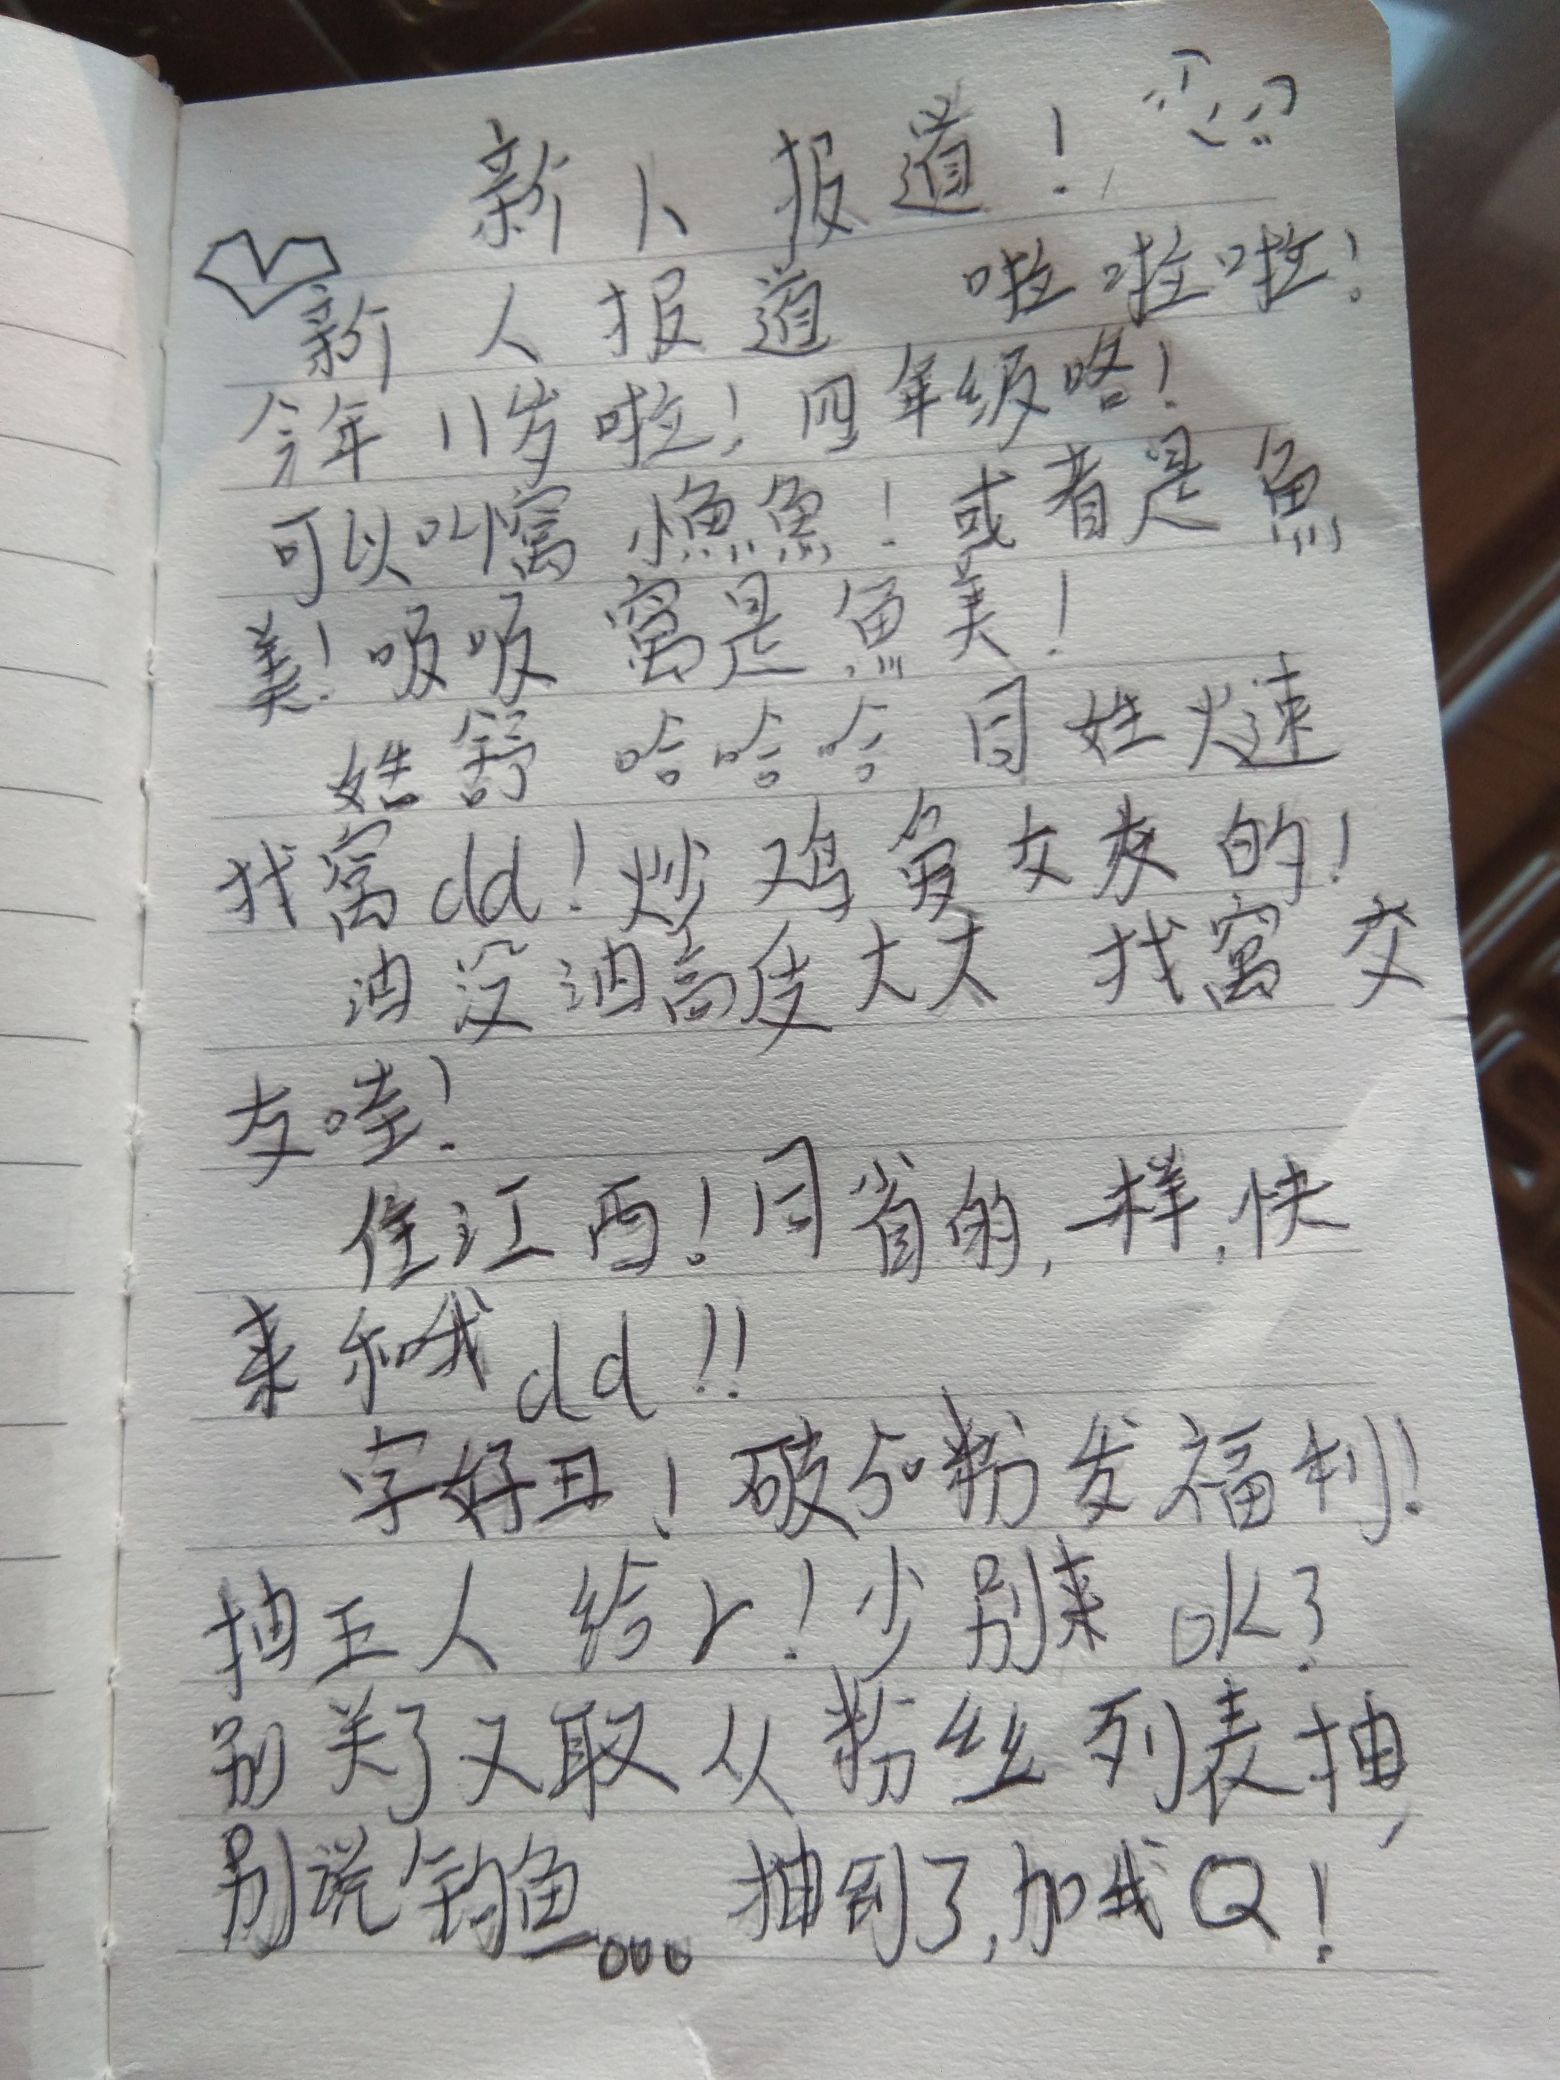 新人报道!
新人报道 啦啦啦!
今年11岁啦!四年级咯!
可以叫窝 小魚魚!或者是魚
美!吸吸 窝是魚美!
姓舒 哈哈哈 同姓火速
找窝dd!炒鸡 的!
没 高度大大 找窝交
友哇!
住江西!同省的,一样,快
来和我dd!!
字好丑!破50粉发福利!
抽五人 给 !少别来ok?
别关了又取 从粉丝列表抽,
别说钓鱼... 抽到了,加我Q!